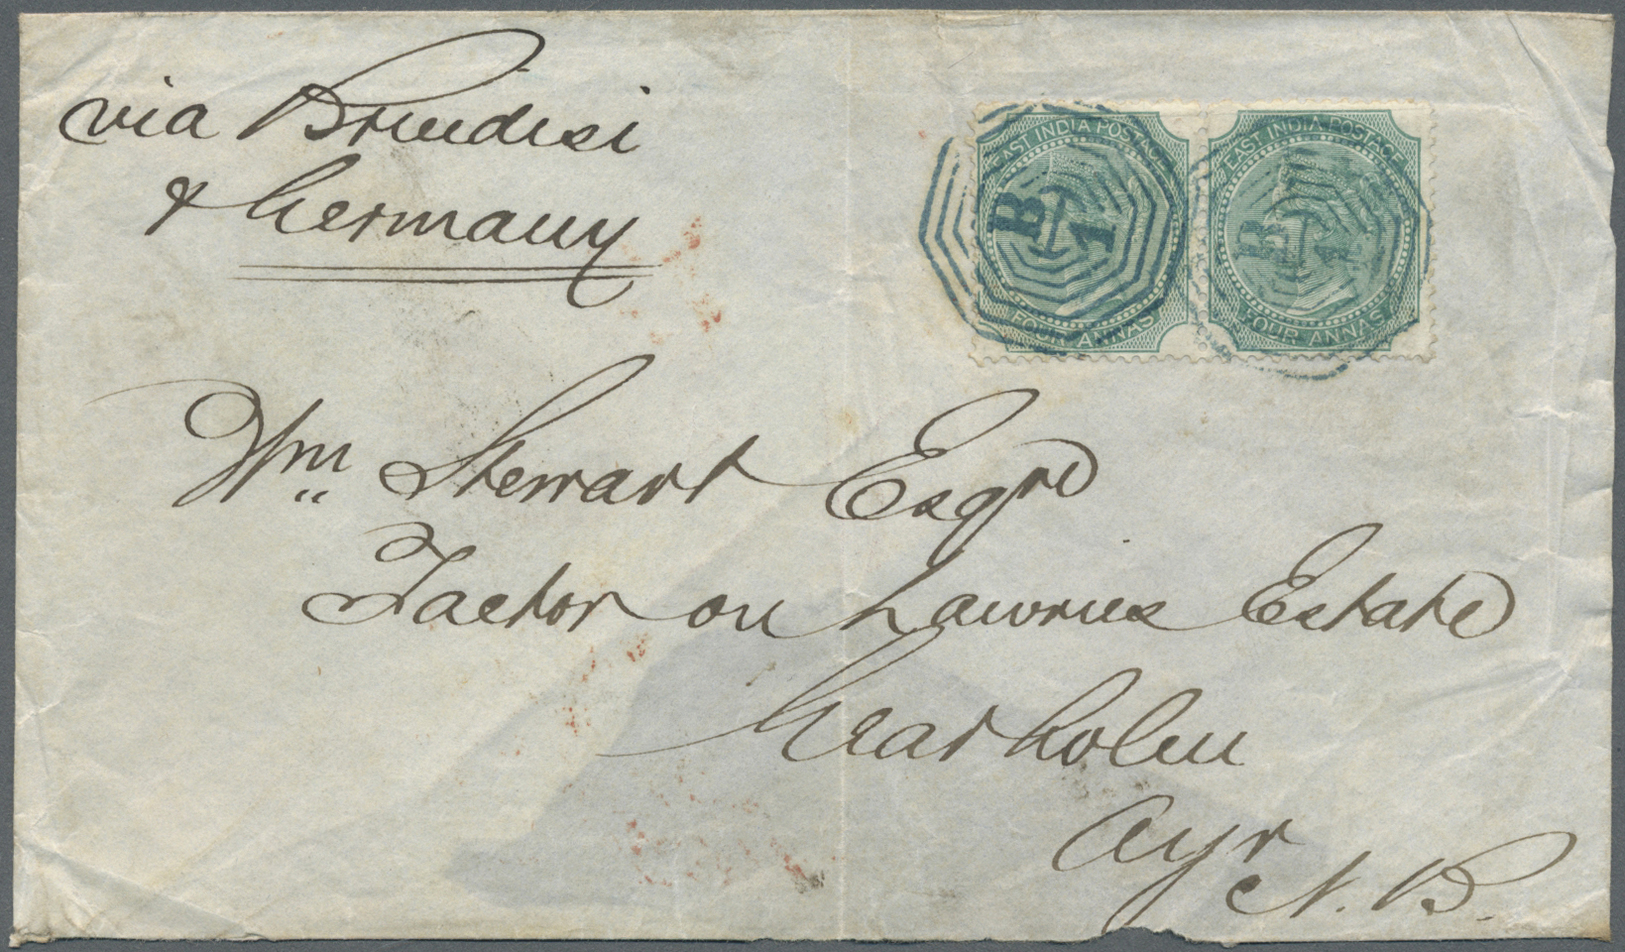 via Brindisi
& Germany
EAST INDIA POSTAGE
EAST INDIA POSTAGE
B
1
B
1
FOUR ANNAS
FOUR ANNAS
Wm Stewart Esqre
Factor on Lawries Estate
Ayr
N. B.